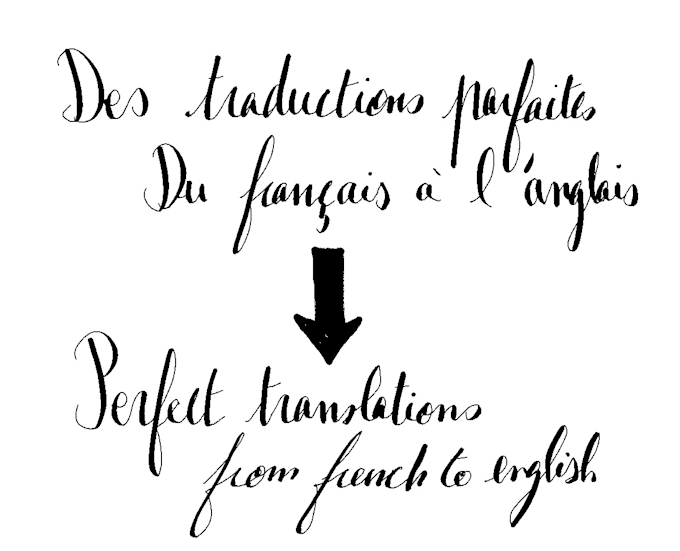 Des traductions parfaites
Du français à l'anglais
Perfect translations
from french to english